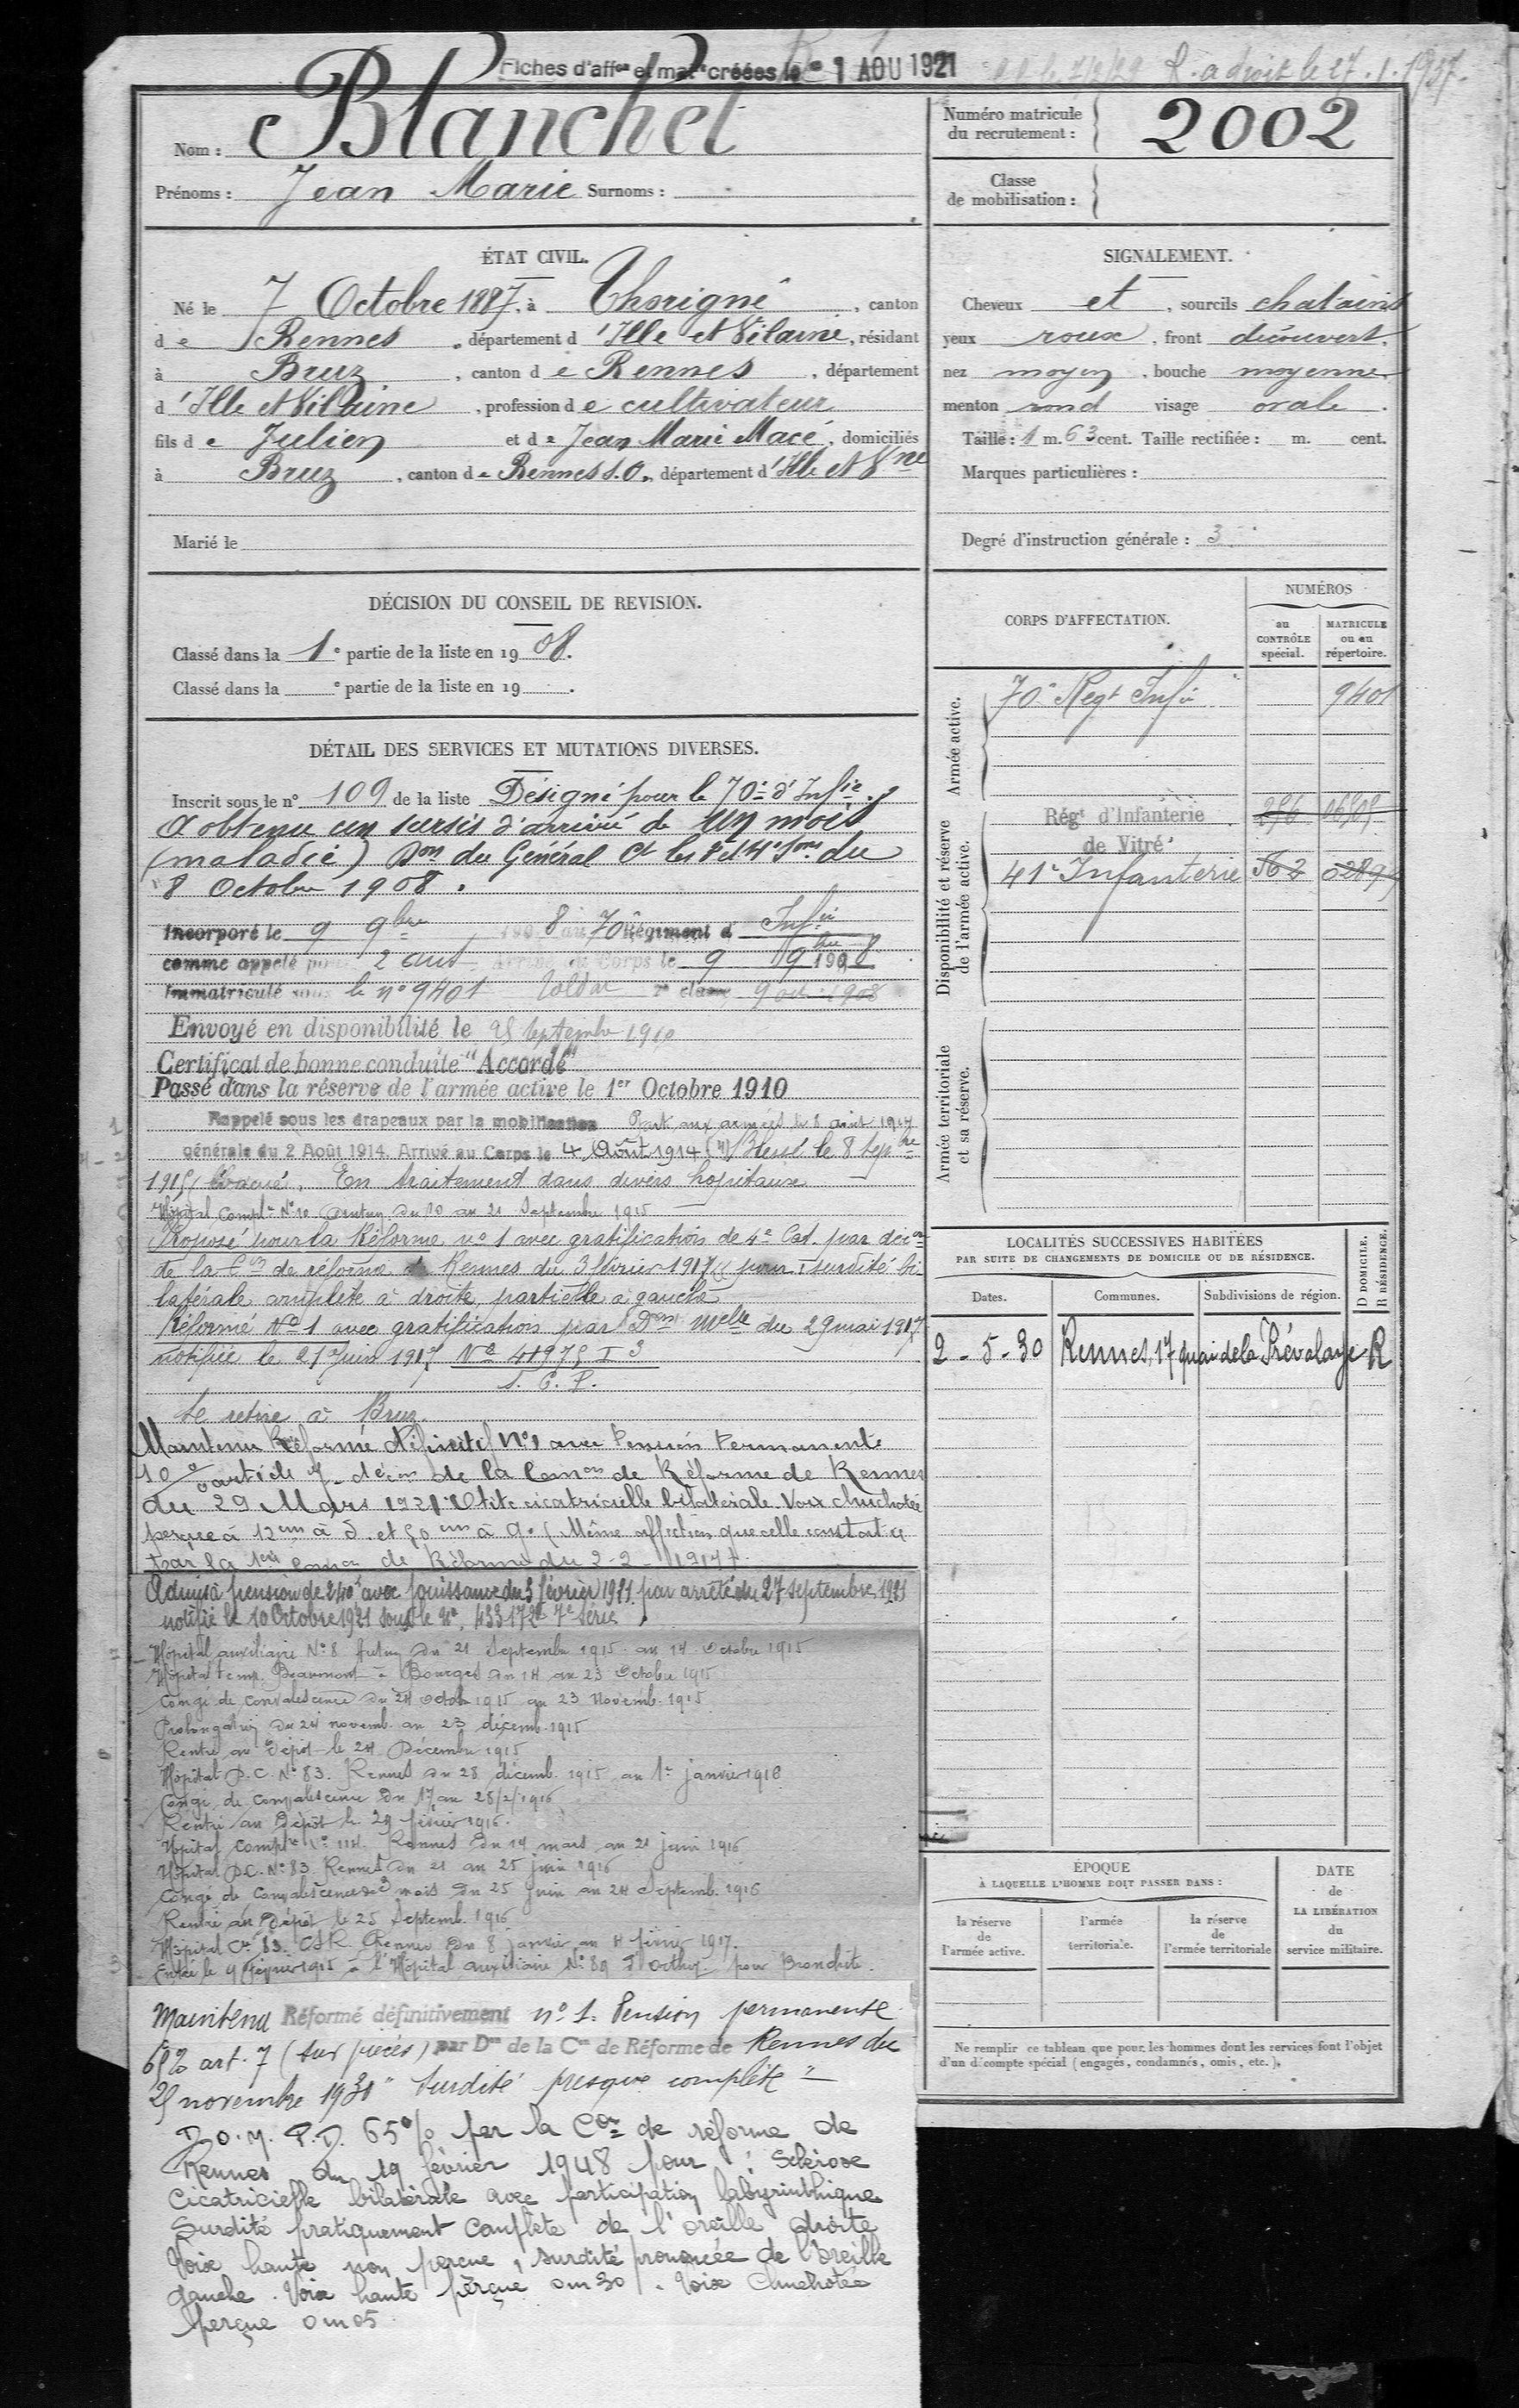 Fiches d'affon et matle créées le 1 AOU 1921
R. a droit le 27.1.1937.
Nom : Blanchet
Prénoms : Jean Marie Surnoms :
Numéro matricule
du recrutement : 2002
Classe
de mobilisation :
ÉTAT CIVIL.
Né le 7 Octobre 1887, à Thorigné, canton
de Rennes, département d'Ille et Vilaine, résidant
à Bruz, canton de Rennes, département
d'Ille et Vilaine, profession de cultivateur
fils de Julien et de Jean Marie Macé, domiciliés
à Bruz, canton de Rennes S.O., département d'Ille et Vne
Marié le
SIGNALEMENT.
Cheveux et, sourcils chatains
yeux roux, front découvert,
nez moyen, bouche moyenne
menton rond visage ovale.
Taille : 1 m. 63 cent. Taille rectifiée : m. cent.
Marques particulières :
Degré d'instruction générale : 3
DÉCISION DU CONSEIL DE REVISION.
Classé dans la 1e partie de la liste en 1908.
Classé dans la e partie de la liste en 19 .
DÉTAIL DES SERVICES ET MUTATIONS DIVERSES.
Inscrit sous le n° 109 de la liste Désigné pour le 70e d'Infie.
A obtenu un sursis d'arrivée de un mois
(maladie) Don du Général Ct les et 4e du
8 Octobre 1908.
Incorporé le 9 9bre 1908 au 70 Régiment d'Infie
comme appelé pour 2 ans Arrivé au Corps le 9 9bre 1908
Immatriculé sous le n° 9401 Soldat 2e classe 9 oct 1908
Envoyé en disponibilité le 25 Septembre 1910
Certificat de bonne conduite "Accordé"
Passé dans la réserve de l'armée active le 1er Octobre 1910
Rappelé sous les drapeaux par la mobilisation Part aux armées le 8 août 1914
générale du 2 Août 1914. Arrivé au Corps le 4 Août 1914 Blessé le 8 Sepbre
1915 Evacué. En traitement dans divers hopitaux
Hôpital Complre N° 10 Autun du 10 au 21 Septembre 1915
Proposé pour la Réforme n° 1 avec gratification de 4e Cat. par décon
de la Con de reforme de Rennes du 3 février 1917 pour surdité bi
latérale complète à droite, partielle à gauche
Réformé No 1 avec gratification par Don Melle du 29 mai 1917
notifiée le 21 Juin 1917 No 41975 I 3
S. C. P.
Se retire à Bruz.
Maintenu Réformé définitif No 1 avec Pension Permanente
10% article 7 décon de la Comon de Réforme de Rennes
du 29 Mars 1921 Otite cicatricielle bilatérale Voix chuchotée
perçue à 12cm à d. et 50cm à g. (Même affection que celle constatée
par la 1ère comon de Réforme du 2-2-1917.
Admis à pension de 240f avec jouissance du 3 février 1921 par arrêté du 27 septembre 1921
notifié le 10 Octobre 1921 sous le N° 433172 7e Série
Hôpital auxiliaire No 8 Autun du 21 Septembre 1915 au 14 Octobre 1915
Hôpital temp. Beaumont à Bourges du 14 au 23 Octobre 1915
Congé de Convalescence du 24 Octob 1915 au 23 Novemb. 1915
Prolongation du 24 novemb. au 23 décemb. 1915
Rentré au dépôt le 24 Décembre 1915
Hôpital D.C. No 83. Rennes du 28 décemb. 1915 au 1er janvier 1916
Congé de Convalescence du 17 au 28/2/1916
Rentré au Dépôt le 29 février 1916.
Hôpital Complre No 114. Rennes du 14 mars au 21 juin 1916
Hôpital D.C. No 83 Rennes du 21 au 25 juin 1916
Congé de Convalescence de 3 mois du 25 Juin au 24 Septemb. 1916
Rentré au Dépôt le 25 Septemb. 1916
Hôpital 83. Rennes du 8 janvier au 4 février 1917.
Entré le 9 février 1915 à l'Hôpital auxiliaire No 89 d'Orthez pour Bronchite.
Maintenu Réformé définitivement n° 1. Pension permanente
65% art. 7 (sur pièces) par Don de la Con de Réforme de Rennes du
25 novembre 1930 "Surdité presque complète"
P.D. 65% par la Con de réforme de
Rennes du 19 février 1948 pour : Sclérose
Cicatricielle bilatérale avec participation labyrinthique
Surdité pratiquement complète de l'oreille droite
Voix haute non perçue, surdité prononcée de l'oreille
gauche. Voix haute perçue 0m30. Voix Chuchotée
perçue 0m05
CORPS D'AFFECTATION.
NUMÉROS
au CONTRÔLE spécial.
MATRICULE ou au répertoire.
Armée active.
70e Regt Infie 9401
Disponibilité et réserve de l'armée active.
Régt d'Infanterie
de Vitré
41e Infanterie
Armée territoriale et sa réserve.
LOCALITÉS SUCCESSIVES HABITÉES
PAR SUITE DE CHANGEMENTS DE DOMICILE OU DE RÉSIDENCE.
D DOMICILE.
R RÉSIDENCE.
Dates. Communes. Subdivisions de région.
2-5-30 Rennes, 17 quai de la Prévalaye R
ÉPOQUE
À LAQUELLE L'HOMME DOIT PASSER DANS :
la réserve de l'armée active.
l'armée territoriale.
la réserve de l'armée territoriale
DATE
de
LA LIBÉRATION
du
service militaire.
Ne remplir ce tableau que pour les hommes dont les services font l'objet
d'un décompte spécial (engagés, condamnés, omis, etc.).